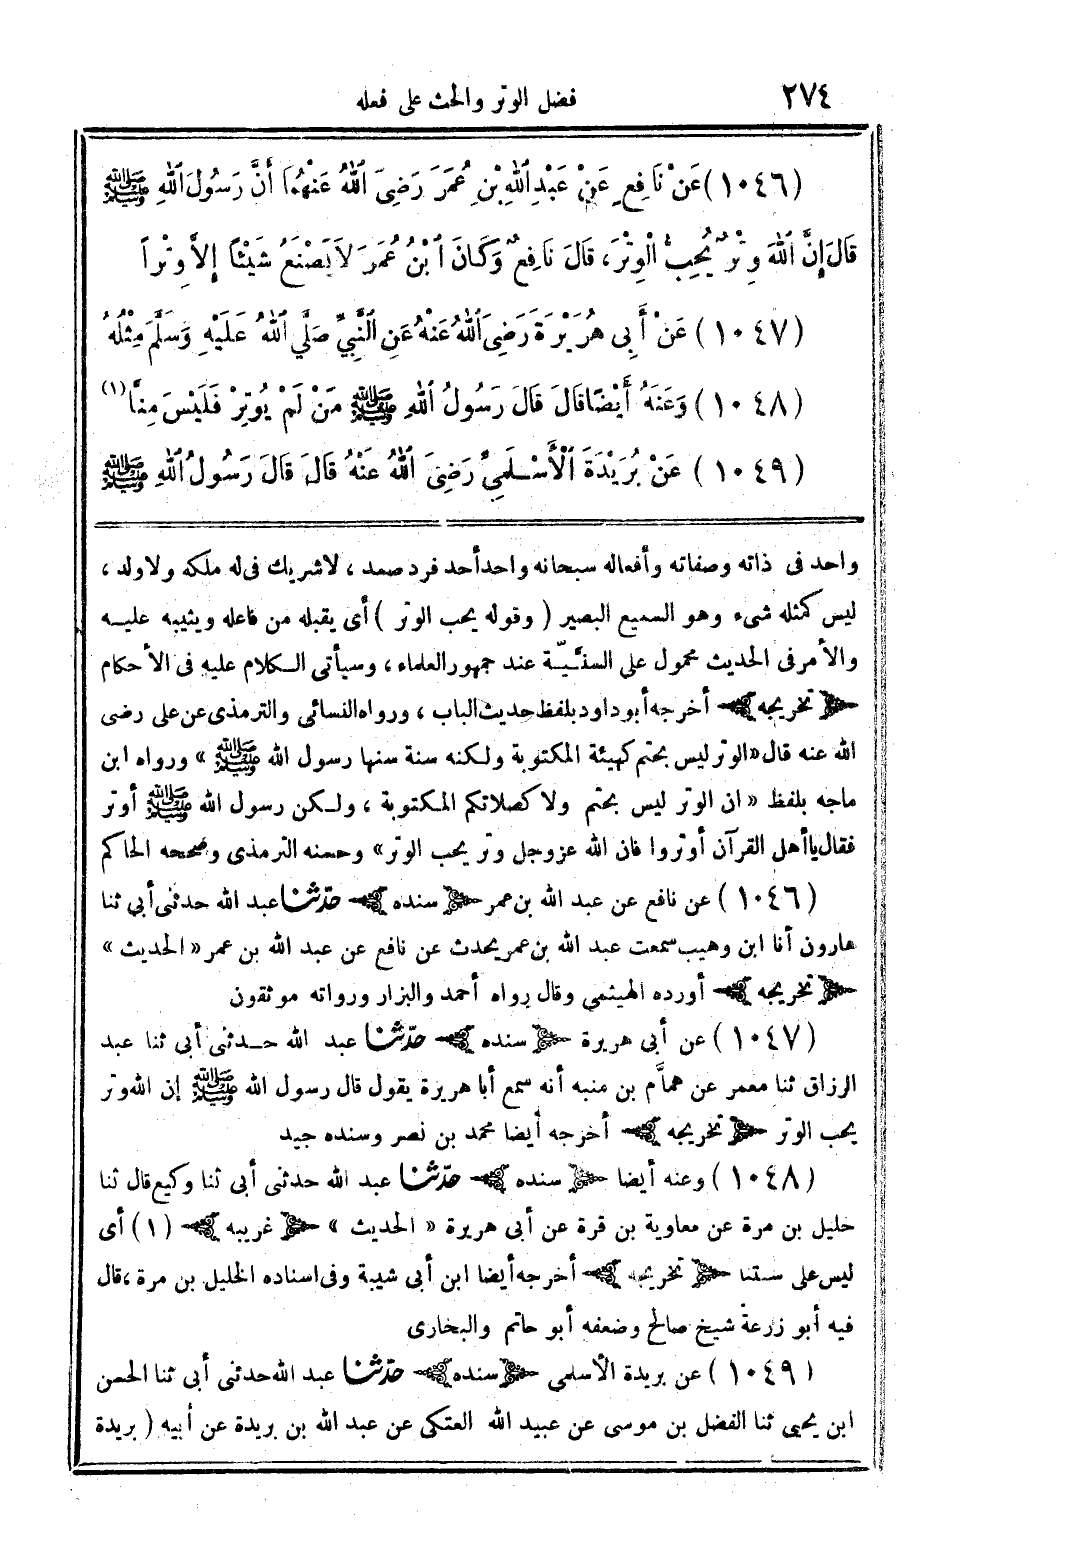 ٢٧٤ فضل الوتر والحث على فعله
(١٠٤٦) عَنْ نَافِعٍ عَنْ عَبْدِ اللهِ بْنِ عُمَرَ رَضِىَ اللهُ عَنْهُمَا أَنَّ رَسُولَ اللهِ ﷺ
قَالَ إِنَّ اللهَ وِتْرٌ يُحِبُّ الْوِتْرَ، قَالَ نَافِعٌ وَكَانَ ابْنُ عُمَرَ لَا يَصْنَعُ شَيْئًا إِلاَّ وِتْراً
(١٠٤٧) عَنْ أَبِى هُرَيْرَةَ رَضِىَ اللهُ عَنْهُ عَنِ النَّبِيِّ صَلَّي اللهُ عَلَيْهِ وَسَلَّمَ مِثْلُهُ
(١٠٤٨) وَعَنَهُ أَيْضًا قَالَ قَالَ رَسُولُ اللهِ ﷺ مَنْ لَمْ يُوتِرْ فَلَيْسَ مِنَّا (١)
(١٠٤٩) عَنْ بُرَيْدَةَ الْأَسْلَمِيِّ رَضِىَ اللهُ عَنْهُ قَالَ قَالَ رَسُولُ اللهِ ﷺ
واحد فى ذاته وصفاته وأفعاله سبحانه واحد أحد فرد صمد، لا شريك فى له ملكه ولا ولد،
ليس كمثله شىء وهو السميع البصير (وقوله يحب الوتر) أى يقبله من فاعله ويثيبه عليه
والأمر فى الحديث محمول على السنّيّة عند جمهور العلماء، وسيأتى الكلام عليه فى الأحكام
﴿تخريجه﴾ أخرجه أبو داود بلفظ حديث الباب، ورواه النسائى والترمذى عن على رضى
الله عنه قال «الوتر ليس بحتم كهيئة المكتوبة ولكنه سنة سنها رسول الله ﷺ» ورواه ابن
ماجه بلفظ «ان الوتر ليس بحتم ولا كصلاتكم المكتوبة، ولكن رسول الله ﷺ أوتر
فقال يا أهل القرآن أوتروا فان الله عز وجل وتر يحب الوتر» وحسنه الترمذى وصححه الحاكم
(١٠٤٦) عن نافع عن عبد الله بن عمر ﴿سنده﴾ حدّثنا عبد الله حدثنى أبي ثنا
هارون أنا ابن وهيب سمعت عبد الله بن عمر يحدث عن نافع عن عبد الله بن عمر «الحديث»
﴿تخريجه﴾ أورده الهيثمي وقال رواه أحمد والبزار ورواته موثقون
(١٠٤٧) عن أبي هريرة ﴿سنده﴾ حدّثنا عبد الله حدثنى أبى ثنا عبد
الرزاق ثنا معمر عن همَّام بن منبه أنه سمع أبا هريرة يقول قال رسول الله ﷺ إن الله وتر
يحب الوتر ﴿تخريجه﴾ أخرجه أيضا محمد بن نصر وسنده جيد
(١٠٤٨) وعنه أيضا ﴿سنده﴾ حدّثنا عبد الله حدثنى أبى ثنا وكيع قال ثنا
خليل بن مرة عن معاوية بن قرة عن أبى هريرة «الحديث» ﴿غريبه﴾ (١) أى
ليس على سنتنا ﴿تخريجه﴾ أخرجه أيضا ابن أبي شيبة وفى اسناده الخليل بن مرة، قال
فيه أبو زرعة شيخ صالح وضعفه أبو حاتم والبخارى
(١٠٤٩) عن بريدة الأسلمي ﴿سنده﴾ حدّثنا عبد الله حدثنى أبى ثنا الحسن
ابن يحيى ثنا الفضل بن موسى عن عبيد الله العتكى عن عبد الله بن بريدة عن أبيه (بريدة